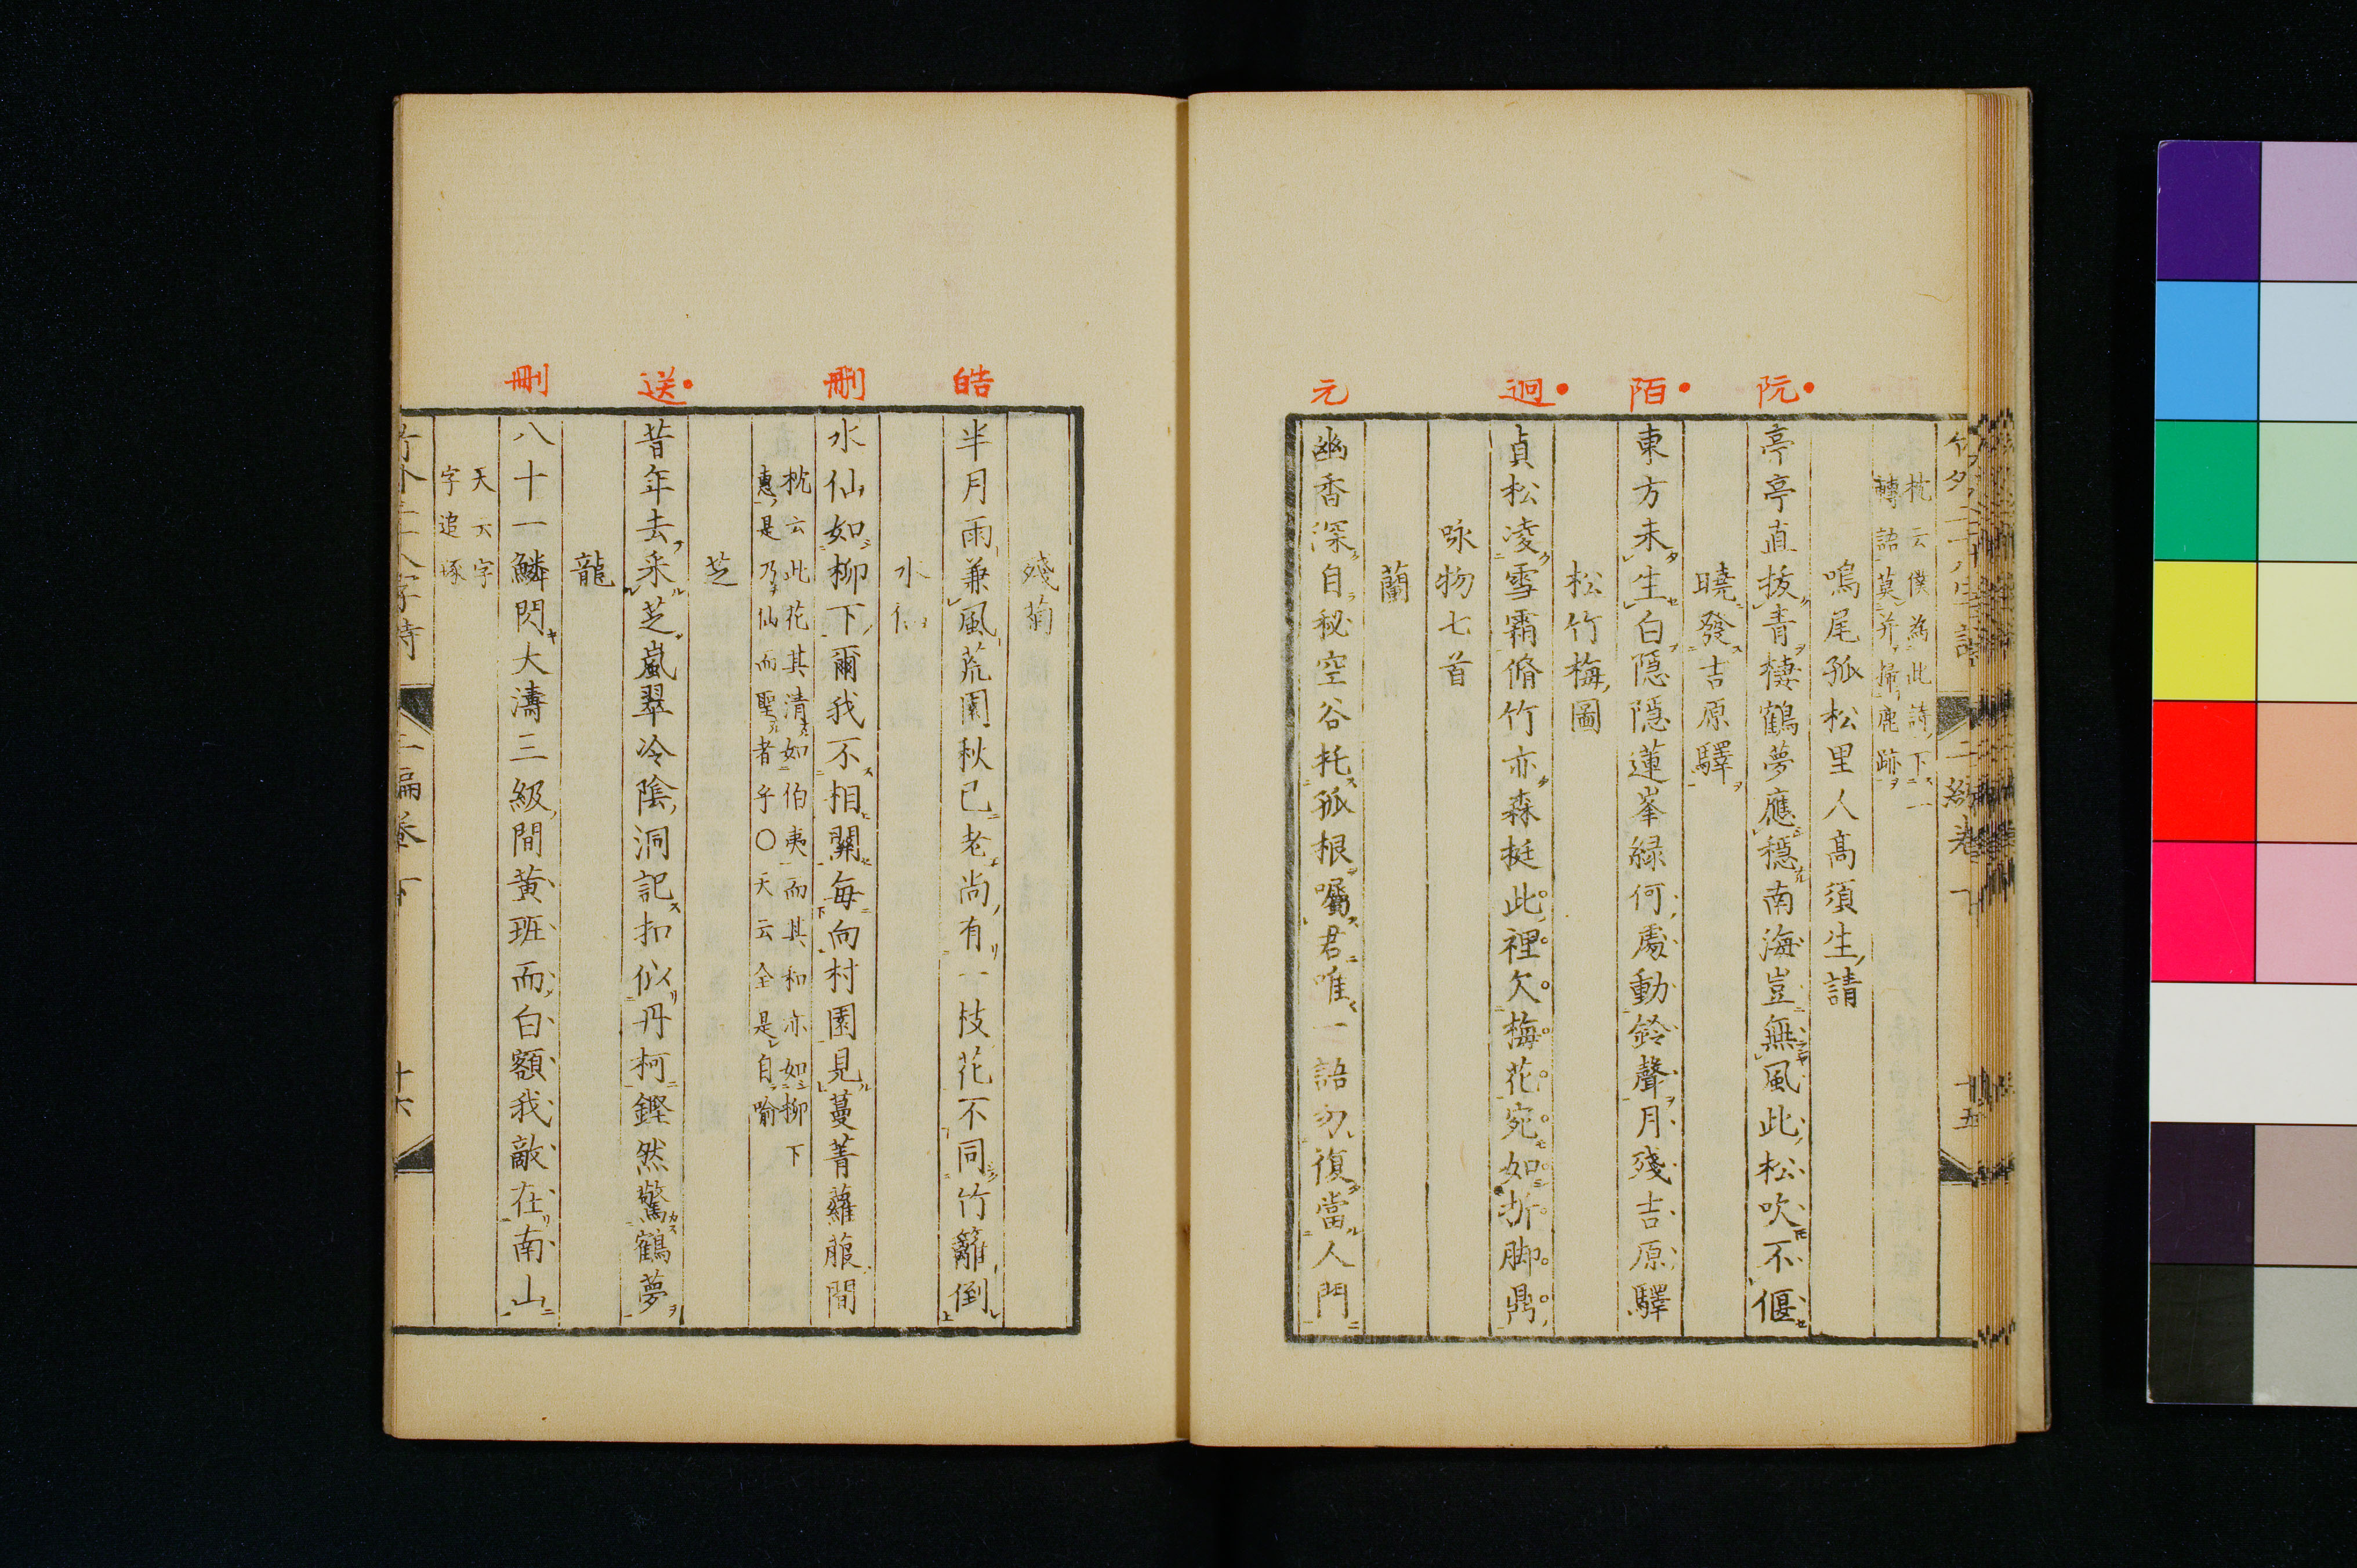 枕云僕為此詩下一
轉語莫并掃鹿跡
鳴尾孤松里人高須生請
阮
亭亭直抜青棲鶴夢應穏南海豈無風此松吹不偃
曉發吉原驛
陌
東方未生白隠隠蓮峯緑何處動鈴聲月残吉原驛
松竹梅圖
迥
貞松凌雪霜脩竹亦森挺此裡欠梅花宛如折脚鼎
咏物七首
蘭
元
幽香深自秘空谷托孤根囑君唯一語勿復當人門
残菊
皓
半月雨兼風荒園秋已老尚有一枝花不同竹籬倒
水仙
刪
水仙如柳下爾我不相關毎向村園見蔓菁蘿菔間
枕云此花其清如伯夷而其和亦如柳下
惠是乃仙而聖者乎〇天云全是自喻
芝
送
昔年去采芝嵐翠冷陰洞記扣似丹柯鏗然驚鶴夢
龍
刪
八十一鱗閃大濤三級間黄班而白額我敵在南山
天云字
字追琢
二編巻下
十六